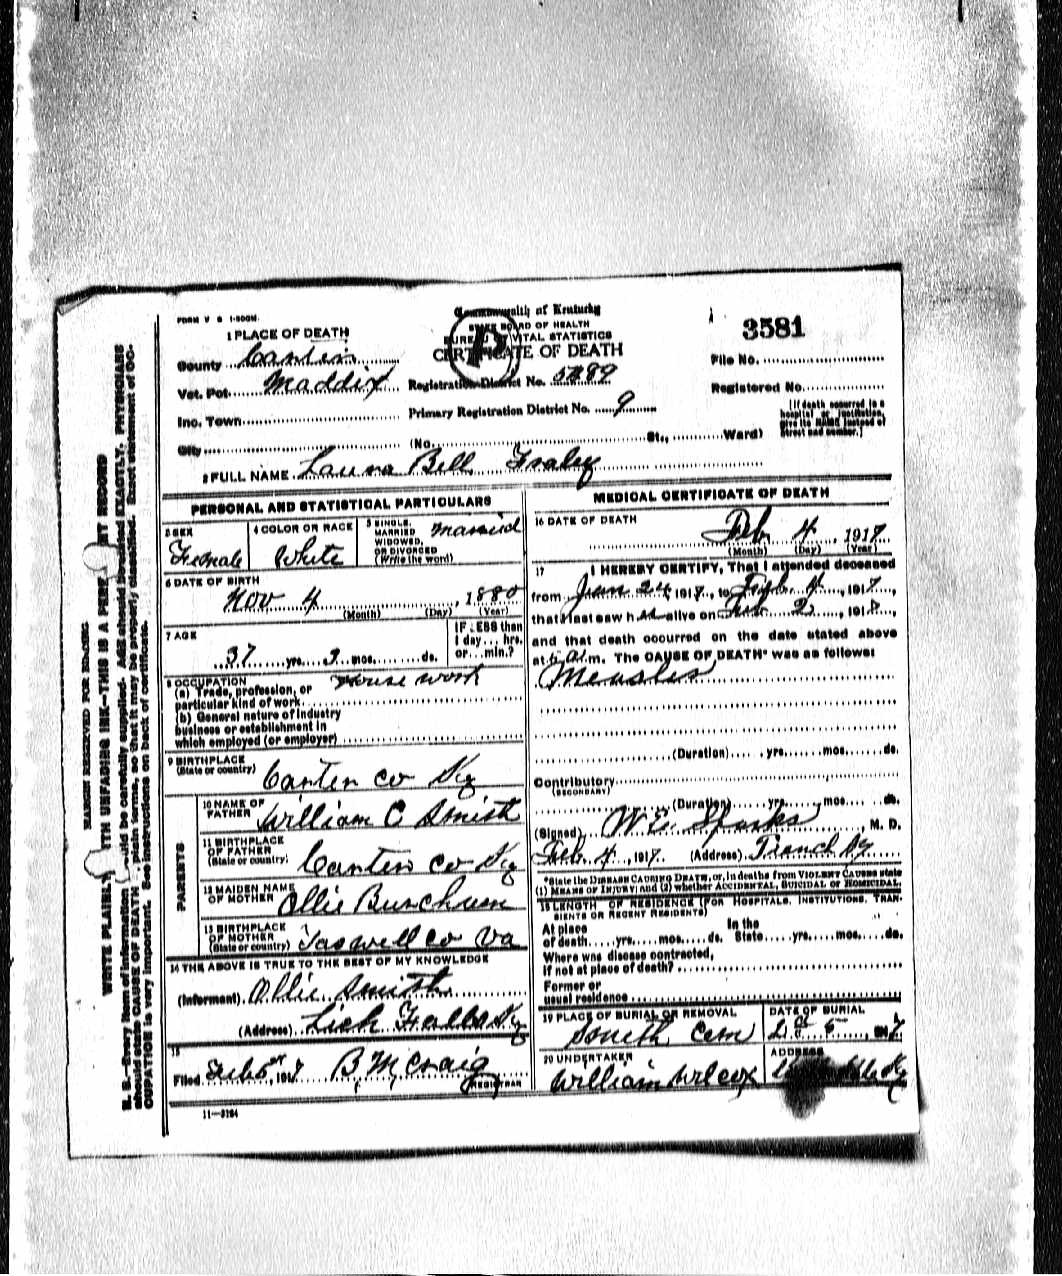 FORM V S 1-500M.
Commonwealth of Kentucky
STATE BOARD OF HEALTH
BUREAU OF VITAL STATISTICS
CERTIFICATE OF DEATH
3581
1 PLACE OF DEATH
County Carter
Vot. Pct. Maddix Registration District No. 89
File No.
Registered No.
Inc. Town Primary Registration District No. 9
[If death occurred in a hospital or institution, give its NAME instead of street and number.]
City (No. St., Ward)
2 FULL NAME Laura Bell Fraley
PERSONAL AND STATISTICAL PARTICULARS
3 SEX Female
4 COLOR OR RACE White
5 SINGLE, MARRIED WIDOWED, OR DIVORCED (Write the word) Married
6 DATE OF BIRTH
Nov 4, 1880
(Month) (Day) (Year)
7 AGE
37 yrs. 3 mos. ds.
IF LESS than 1 day... hrs. or...min.?
8 OCCUPATION House work
(a) Trade, profession, or particular kind of work
(b) General nature of industry business or establishment in which employed (or employer)
9 BIRTHPLACE (State or country) Carter co Ky
PARENTS
10 NAME OF FATHER William C Smith
11 BIRTHPLACE OF FATHER (State or country) Carter Co Ky
12 MAIDEN NAME OF MOTHER Ollie Burchum
13 BIRTHPLACE OF MOTHER (State or country) Taswell co Va
14 THE ABOVE IS TRUE TO THE BEST OF MY KNOWLEDGE
(Informant) Ollie Smith
(Address) Lick Falls Ky
15
Filed Feb 5, 1917 B. M. Craig
REGISTRAR
11—3184
MEDICAL CERTIFICATE OF DEATH
16 DATE OF DEATH
Feb 4, 1917
(Month) (Day) (Year)
17 I HEREBY CERTIFY, That I attended deceased
from Jan 24 1917, to Feb 4, 1917,
that I last saw h alive on Feb 2, 191
and that death occurred on the date stated above
at m. The CAUSE OF DEATH* was as follows:
Measles
(Duration) yrs. mos. ds.
Contributory
(SECONDARY)
(Duration) yrs. mos. ds.
(Signed) W. E. Sparks, M. D.
Feb. 4, 1917. (Address) Ky
*State the DISEASE CAUSING DEATH, or, in deaths from VIOLENT CAUSES state
(1) MEANS OF INJURY; and (2) whether ACCIDENTAL, SUICIDAL or HOMICIDAL.
18 LENGTH OF RESIDENCE (FOR HOSPITALS, INSTITUTIONS, TRANSIENTS OR RECENT RESIDENTS)
At place of death yrs. mos. ds. In the State yrs. mos. ds.
Where was disease contracted,
if not at place of death?
Former or
usual residence
19 PLACE OF BURIAL OR REMOVAL Smith Cem
DATE OF BURIAL 2 5, 1917
20 UNDERTAKER William Wilcox
ADDRESS Ky
MARGIN RESERVED FOR BINDING
WRITE PLAINLY WITH UNFADING INK—THIS IS A PERMANENT RECORD
N. B.—Every item of information should be carefully supplied. AGE should be stated EXACTLY. PHYSICIANS
should state CAUSE OF DEATH in plain terms, so that it may be properly classified. Exact statement of OC-
CUPATION is very important. See instructions on back of certificate.